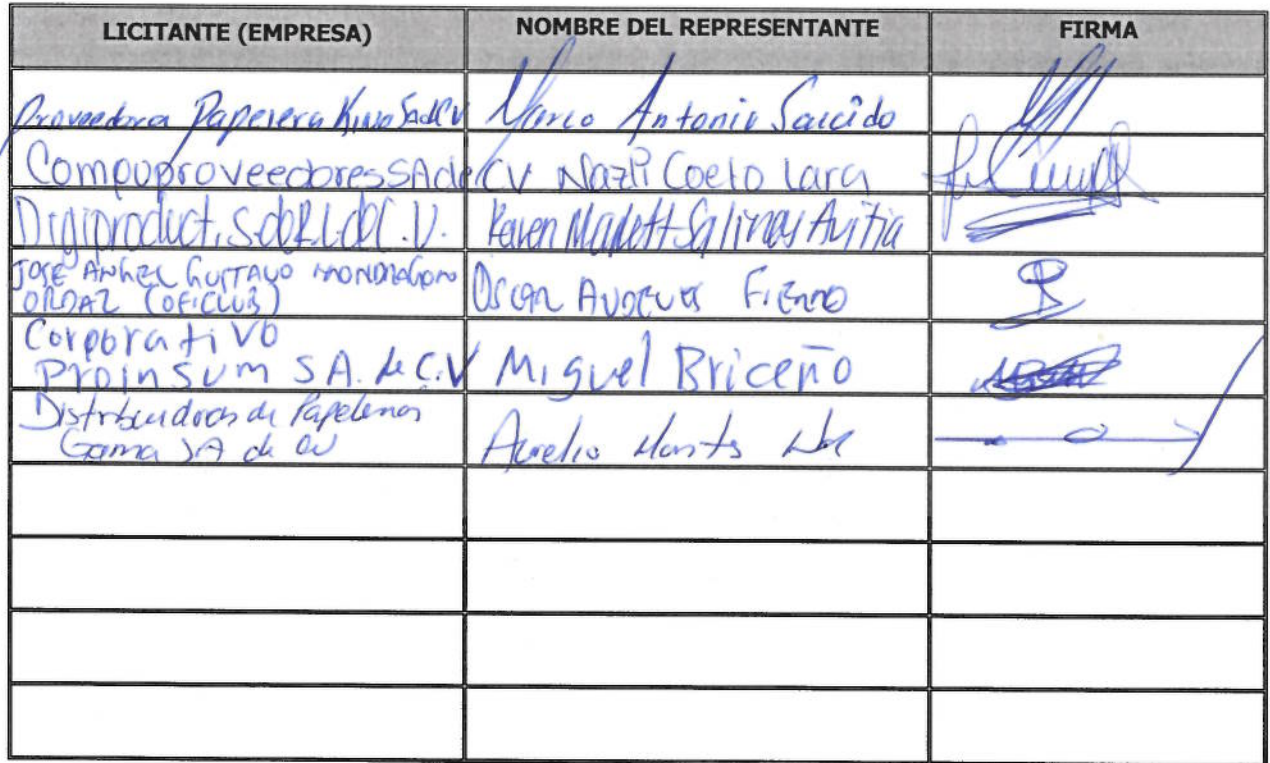 LICITANTE (EMPRESA) NOMBRE DEL REPRESENTANTE FIRMA
Proveedora Papelera Kino SAdeCV Marco Antonio Saucido
Compuproveedores SAdeCV Nazli Coeto Lara
Digiproduct, S.deR.L.deC.V. Karen Salinas Avitia
JOSE ANGEL GUSTAVO MONDRAGON
ORDAZ (OFICLUB) OSCAR FIERRO
Corporativo
Proinsum S.A. de C.V Miguel Briceño
Distribuidora de Papelerias
Gama SA de CV Aurelio